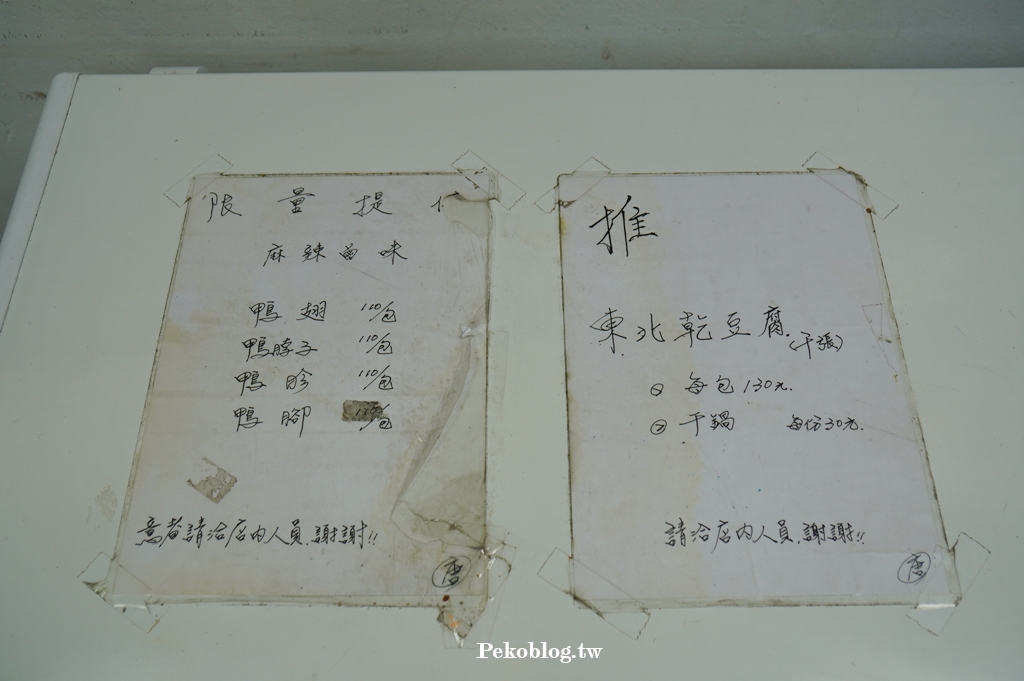 限量提
麻辣滷味
鴨翅 110/包
鴨脖子 110/包
鴨胗 110/包
鴨腳 /包
意者請洽店內人員.謝謝!!
唐
推
東北乾豆腐.(干張)
① 每包130元.
② 干鍋 每份30元.
請洽店內人員.謝謝!!
唐
Pekoblog.tw